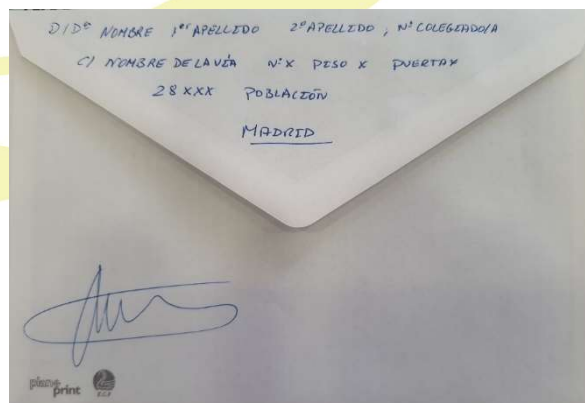 D/Dª NOMBRE 1er APELLIDO 2º APELLIDO, Nº COLEGIADO/A
C/ NOMBRE DE LA VÍA Nº X PISO X PUERTA X
28XXX POBLACIÓN
MADRID
plane
print